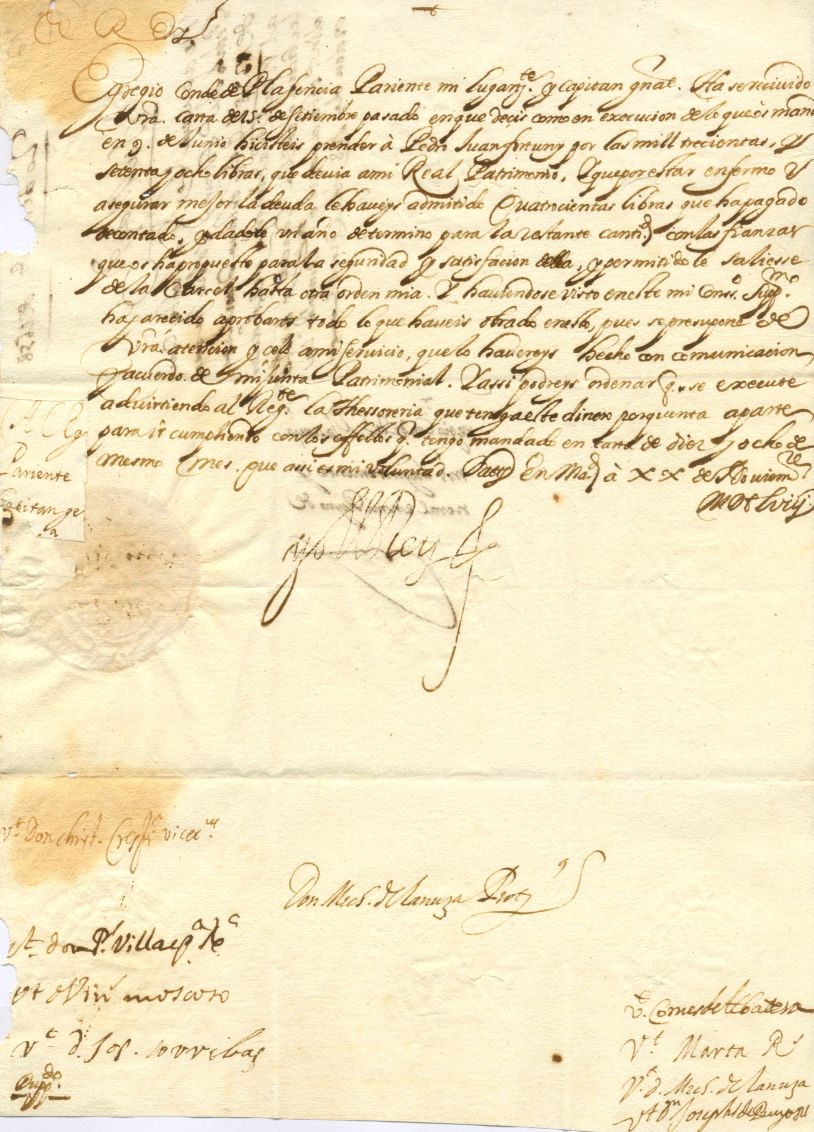 El Rey
Egregio Conde de Plasencia Pariente mi lugarte y capitan gnal. Ha se recivido
Vra. carta de 15. de Setiembre pasado en que decis como en execucion de lo que os mande
en 9. de Junio hicisteis prender à Pedro Juan fortuny por las mill trecientas, y
setenta y ocho libras, que devia a mi Real Patrimonio, Y que por estar enfermo y
asegurar mejor la deuda le haveys admitido quatrocientas libras que ha pagado
de contado, y dadole un año de termino para la restante cantd. con las fianzas
que os ha propuesto para la seguridad y satisfacion della, y permitidole saliesse
de la Carcel hasta otra orden mia. Y haviendose visto en este mi Conss.o Supmo.
ha parecido aprobaros todo lo que haveis obrado en esto, pues se presupone de
Vra. atencion y celo a mi servicio, que lo havereys hecho con comunicacion
y acuerdo de mi junta Patrimonial. Y assi podreys ordenar q. se execute
advirtiendo al Regte. la Thessoreria que tenga este dinero por quenta aparte
para ir cumpliendo con los effetos q. tengo mandado en carta de diez y ocho de
mesmo mes, que assi es mi voluntad. Datt. en Mad. à XX de Noviemre
MDCLviij.
Al Eg
Pariente
Capitan ge
yo el Rey
Vt. Don Christ. Crespi Vicecs.
Don Mich. de Lanuza Protus
Vt. don Pl. Villacpa. Re.
Vt. moscoso
Vt. d. Jos. torribas
Dupdo.
Vt. Comes de Albatera
Vt. Marta Rs
Vt. d. Mich. de Lanuza
Vt. Dn Joseph de